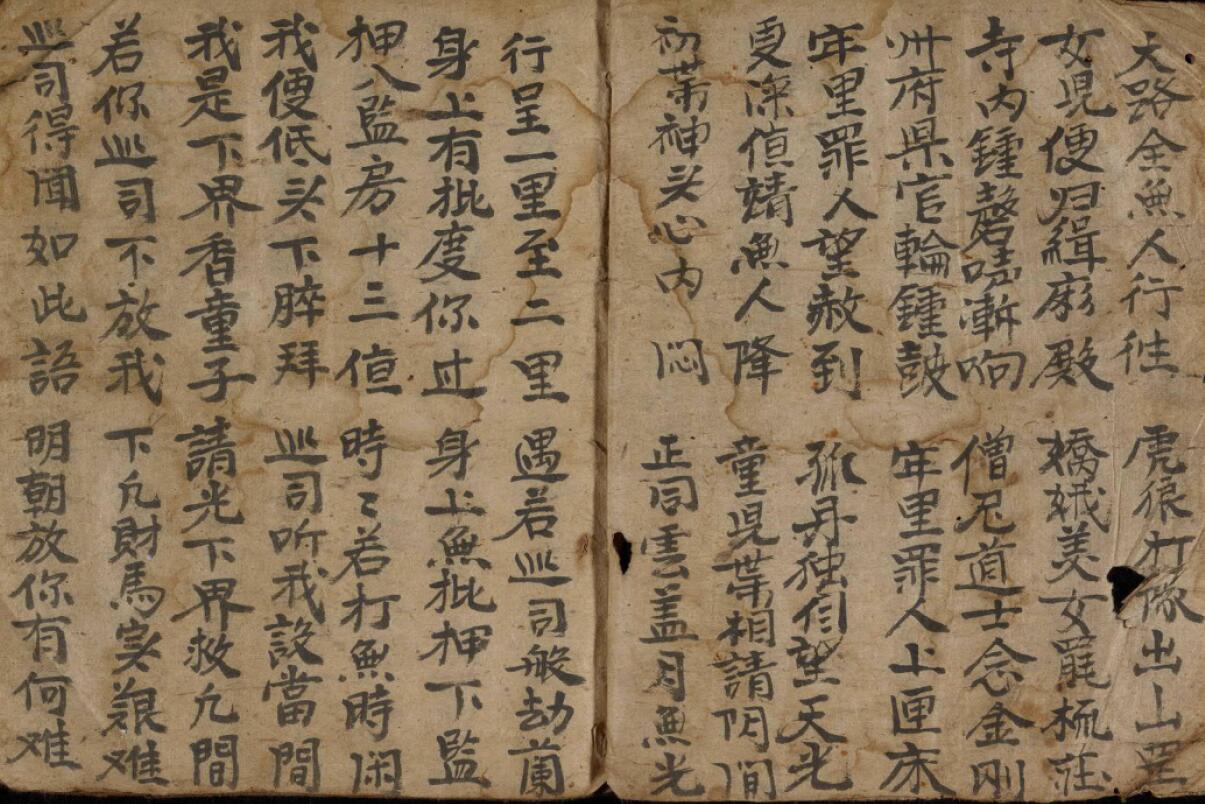 大路全魚人行往 虎狼打隊出山罡
女児便归緝麻殿 嬌娥美女罷梳莊
寺内鍾磬响 僧尼道士念金刚
州府県官輪鍾鼓 牢里罪人上匣床
牢里罪人望赦到 孤舟独自望天光
夏深值請魚人降 童児葉相請門間
初葉神头心内悶 正同雲盖月魚光
行呈一里至二里 遇若巡司般劫蘭
身上有批度你过 身上魚批押下監
押入監房十三值 時〻若打魚時闲
我便低头下脺拜 巡司听我說當間
我是下界香童子 請光下界救凢間
若你巡司不放我 下凢財馬実艱难
巡司得聞如此語 明朝放你有何难